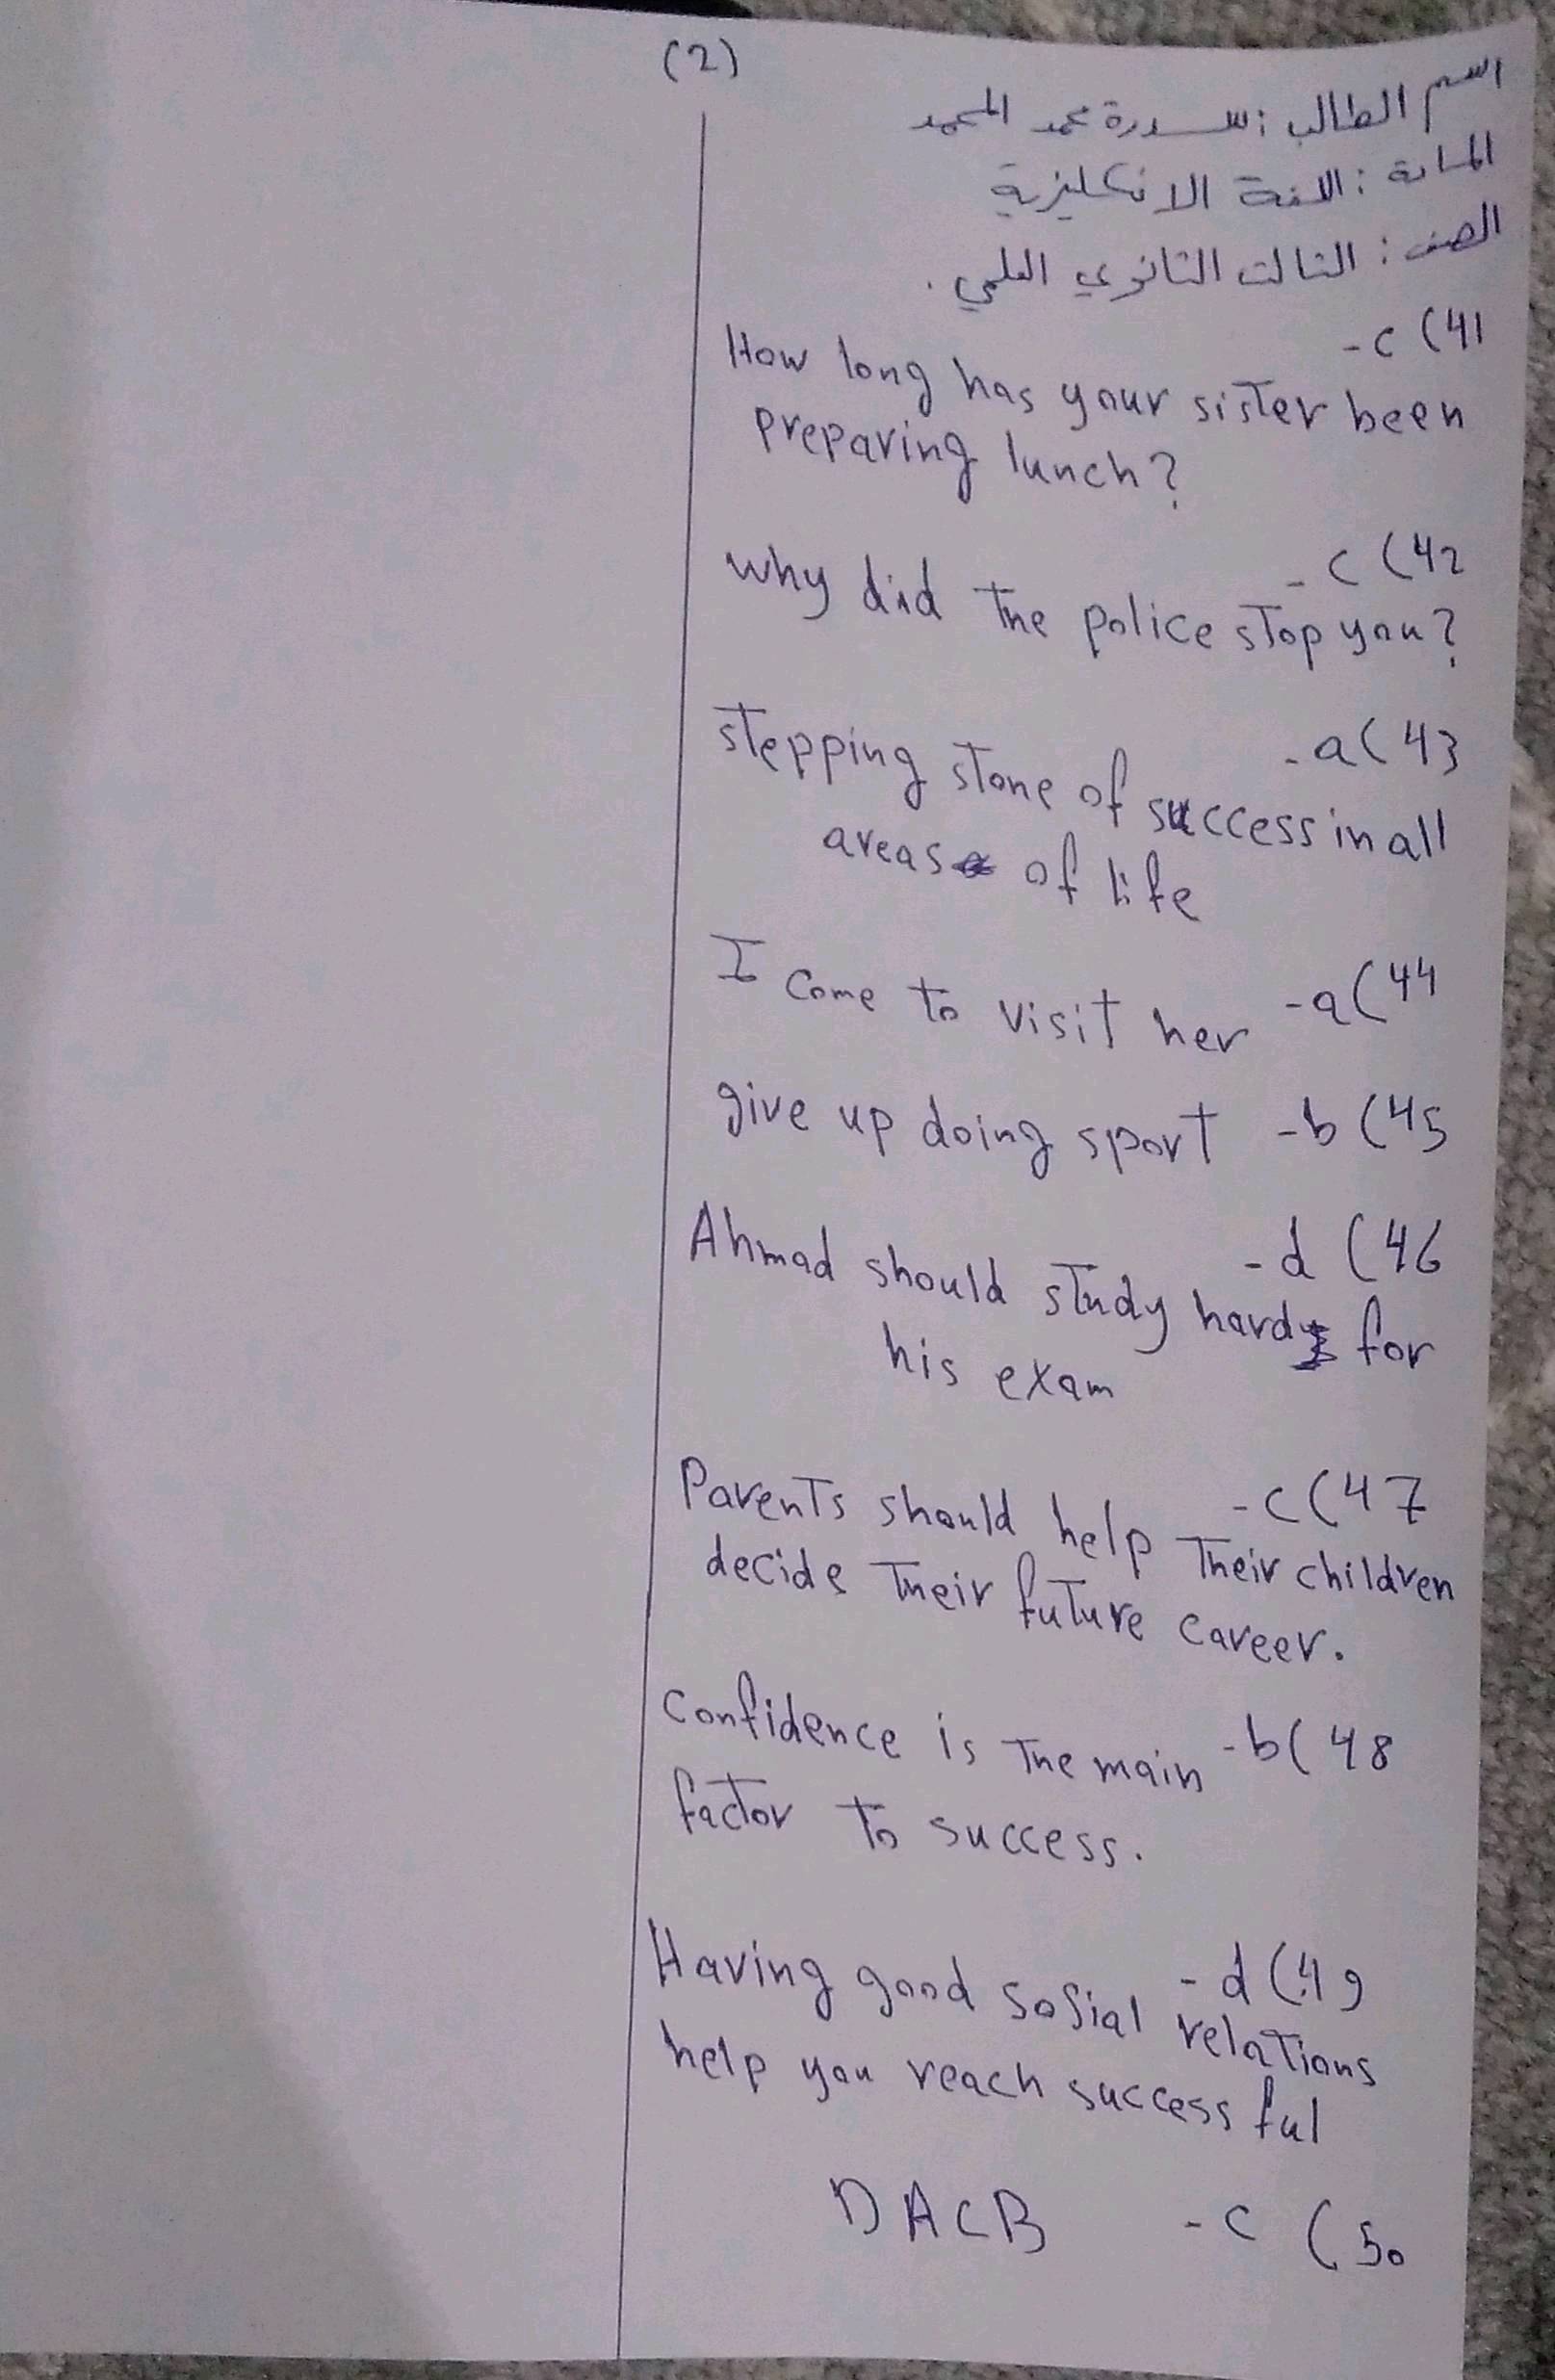 (2)
اسم الطالب : سدرة محمد المحمد
المادة : اللغة الانكليزية
الصف : الثالث الثانوي العلمي .
41) c-
How long has your sister been
preparing lunch?
42) c -
why did the police stop you?
43) a -
stepping stone of success in all
areas of life
44) a- I come to visit her
45) b- give up doing sport
46) d -
Ahmad should study hard for
his exam
47) c -
Parents should help their children
decide their future career.
48) b- confidence is the main
factor to success.
49) d -
Having good sosial relations
help you reach successful
50) c - DACB